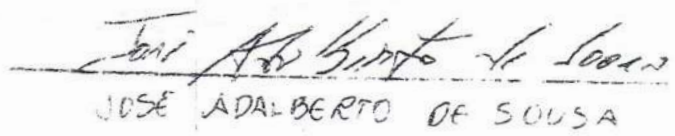 José Adalberto de Sousa
JOSÉ ADALBERTO DE SOUSA